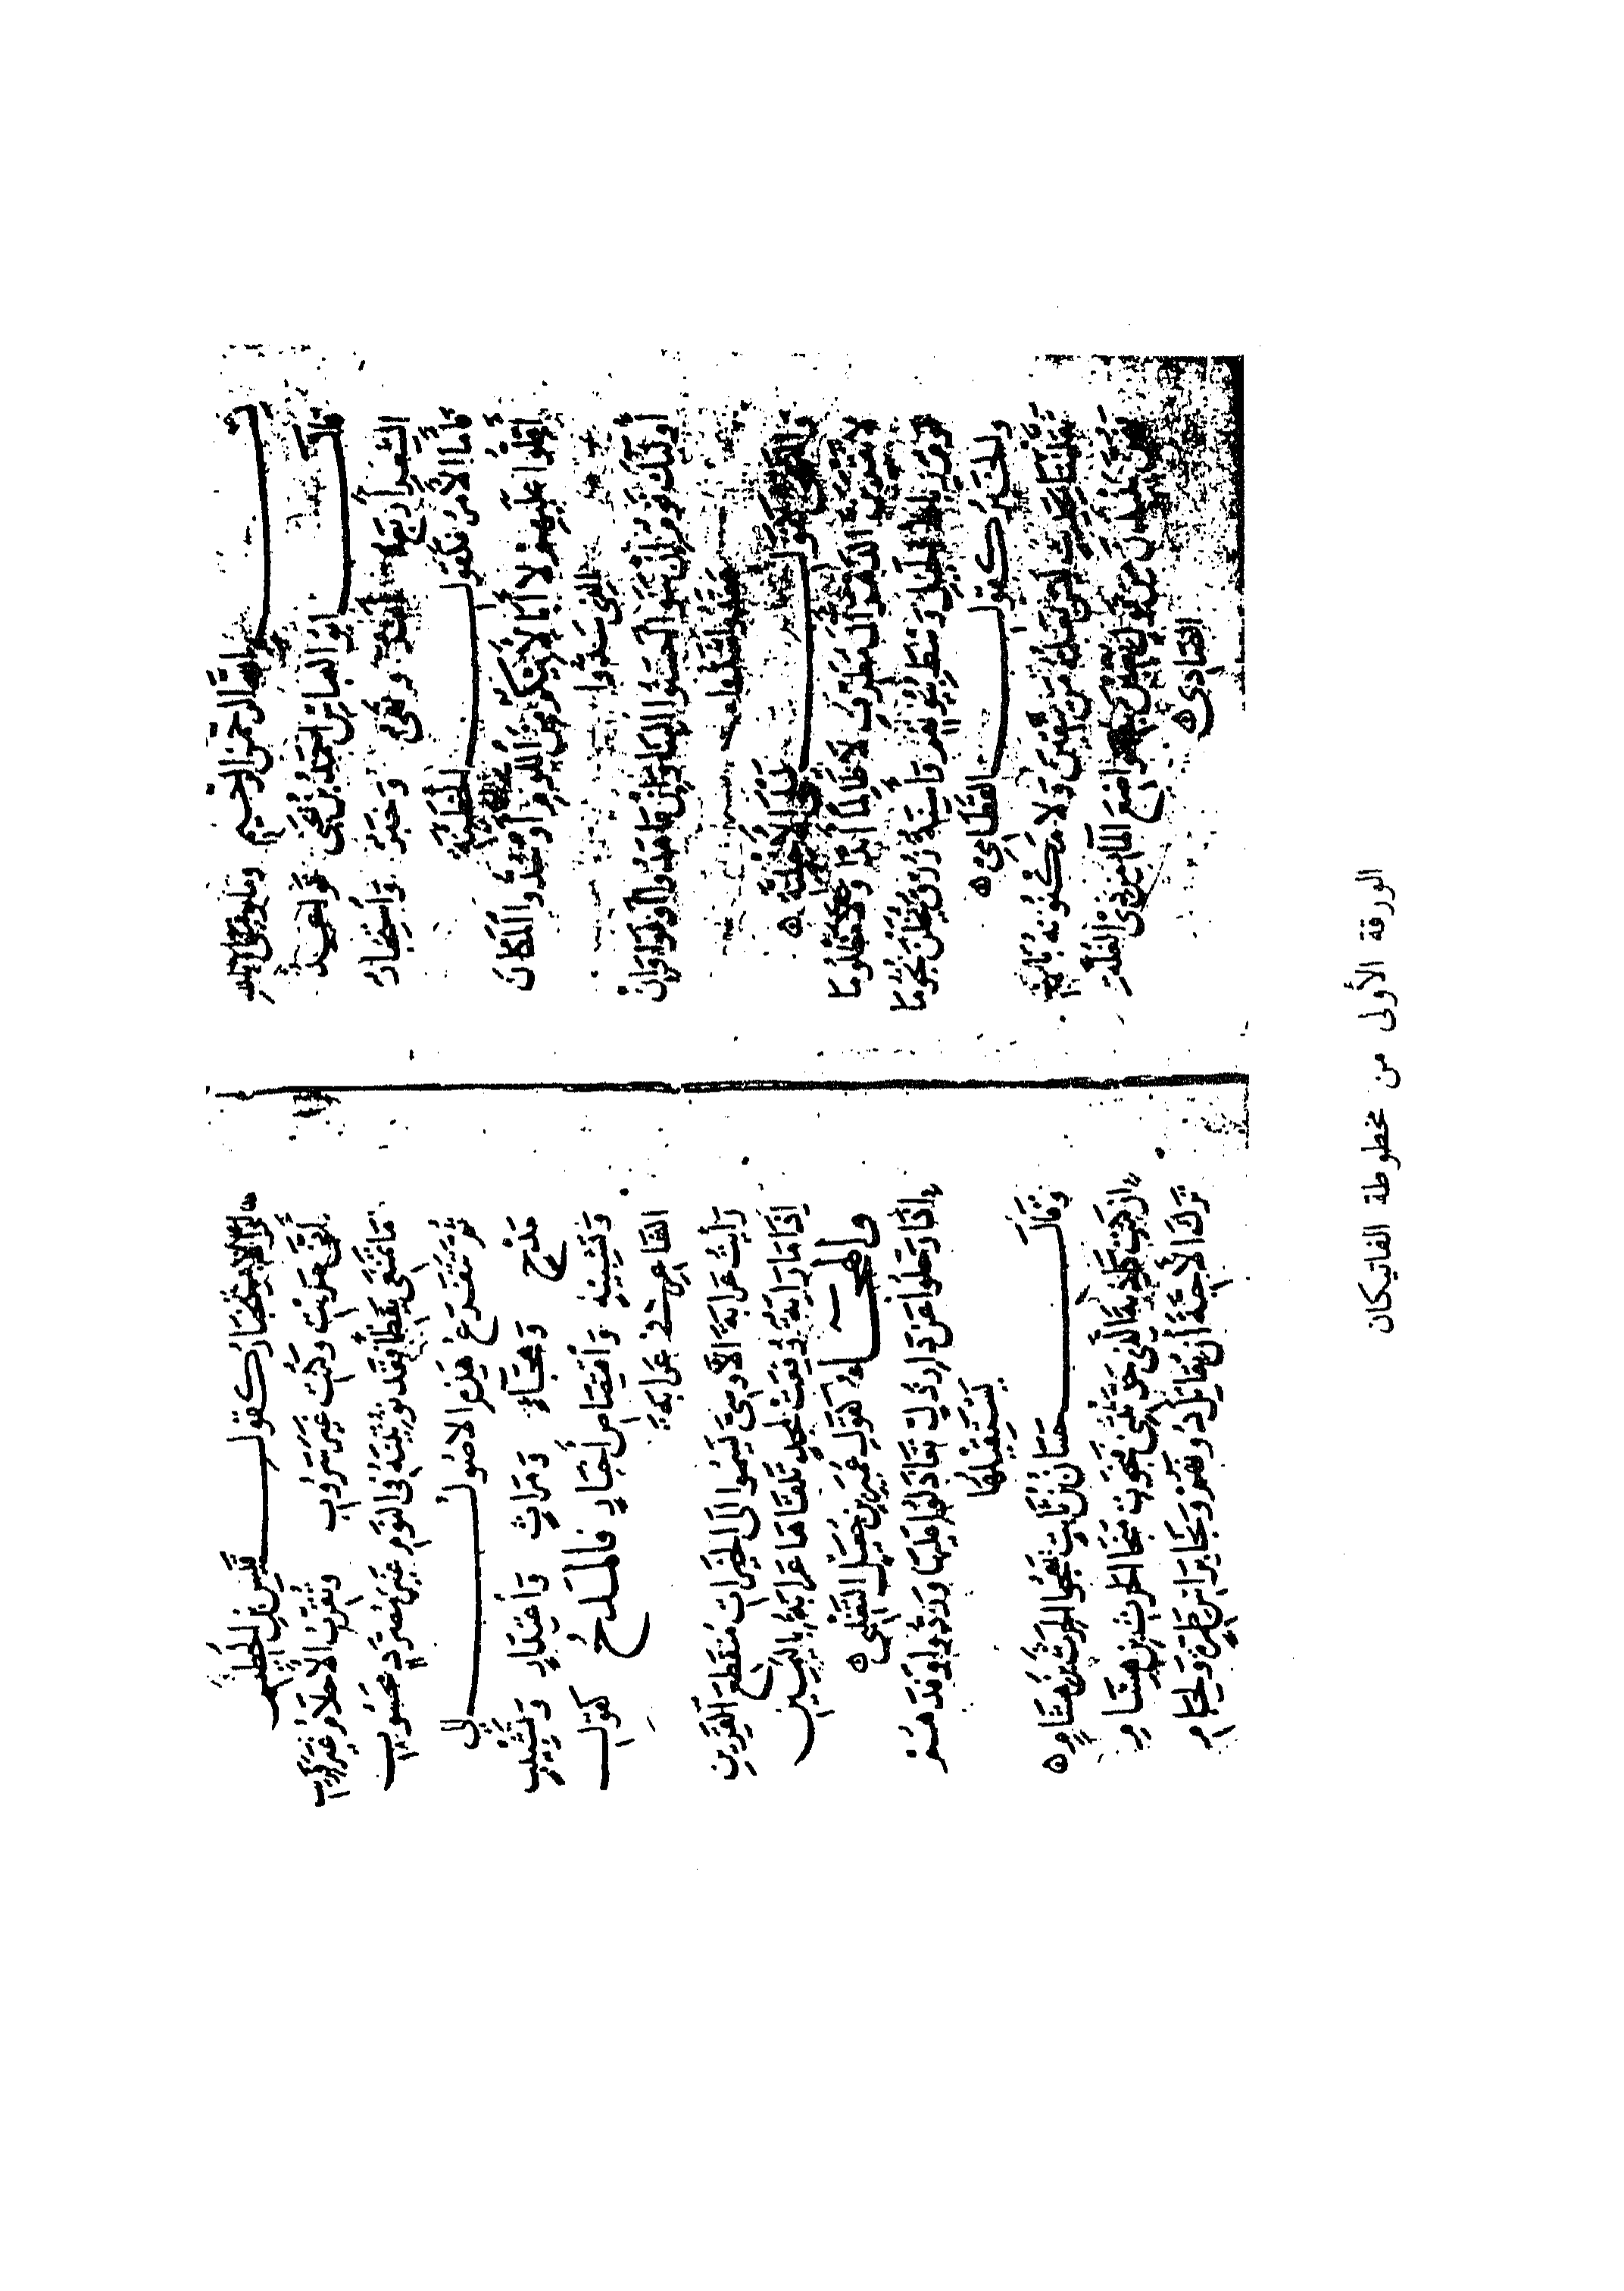 بسم الله الرحمن الرحيم
قال أبو العباس أحمد بن يحيى
الشعر أربعة أمر ونهي وخبر واستخبار
فأما الأمر فكقول الحطيئة
أقلوا عليهم لا أبا لأبيكم من اللوم أو سدوا المكان
الذي سدوا
أولئك قوم إن بنوا أحسنوا البنا وإن عاهدوا أوفوا وإن
عقدوا شدوا
والنهي كقول ليلى الأخيلية
لا تقربن الدهر آل مطرف لا ظالما أبدا ولا مظلوما
قوم رباط الخيل وسط بيوتهم وأسنة زرق يخلن نجوما
والخبر كقول القطامي
يقتلننا بحديث ليس يعلمه من يتقين ولا مكنونه باد
فهن ينبذن من قول يصبن به مواقع الماء من ذي الغلة
الصادي
والاستخبار كقول قيس بن الخطيم
أنى سربت وكنت غير سروب وتقرب الأحلام غير قريب
ما تمنعي يقظى فقد تؤتينه في النوم غير مصرد محسوب
ثم تتفرع هذه الأصول إلى
مدح وهجاء ومراث واعتذار وتشبيب
وتشبيه واقتصاص أخبار فالمدح كقول
الشماخ في عرابة
رأيت عرابة الأوسي يسمو إلى الخيرات منقطع القرين
إذا ما راية رفعت لمجد تلقاها عرابة باليمين
والهجاء كقول عمير بن جعيل التغلبي
إذا رحلوا عن دار ذل تعاذلوا عليها وردوا وفدهم
يستقيلها
وقال حسان بن ثابت يهجو الحرث بن هشام
إن كنت كاذبة الذي حدثتني فنجوت منجا الحرث بن هشام
ترك الأحبة أن يقاتل دونهم ونجا برأس طمرة ولجام
الورقة الأولى من مخطوطة الفاتيكان